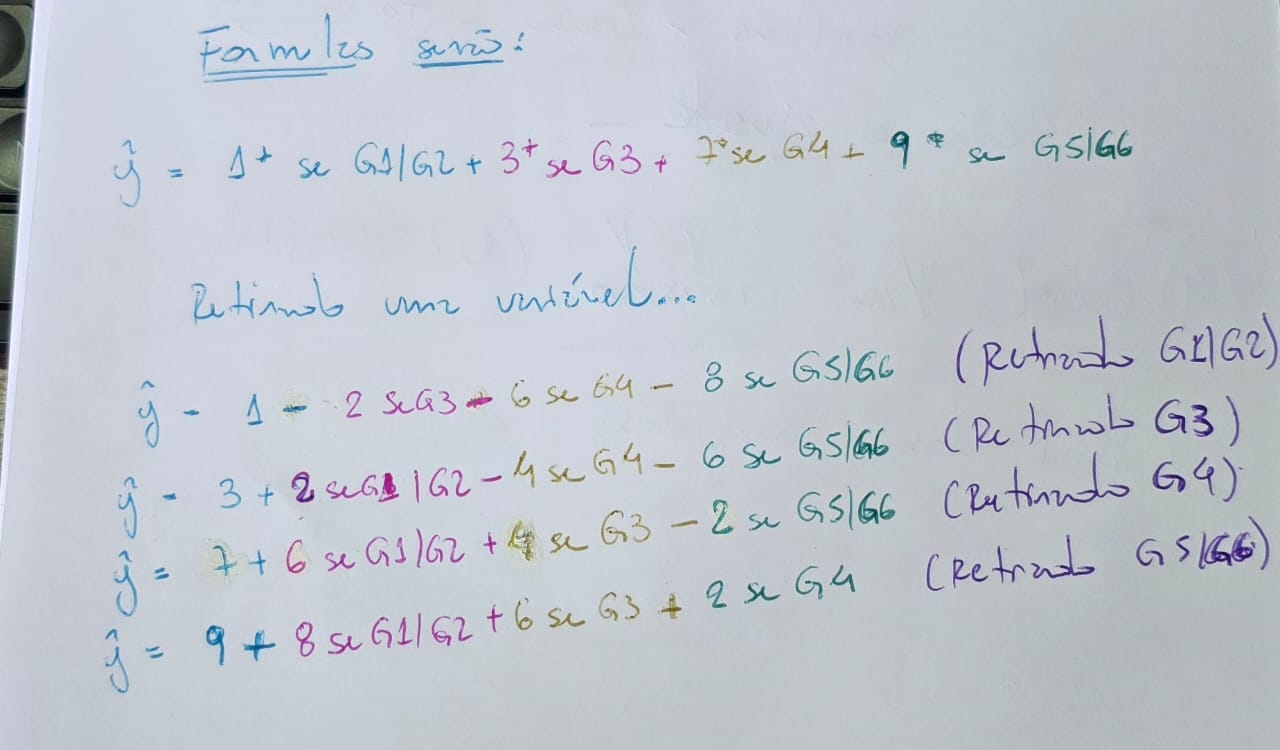 Formulas serão:
ŷ = 1* se G1|G2 + 3* se G3 + 7* se G4 + 9* se G5|G6
Retirando uma variável...
ŷ - 1 - 2 se G3 - 6 se G4 - 8 se G5|G6 (Retirando G1|G2)
ŷ - 3 + 2 se G1|G2 - 4 se G4 - 6 se G5|G6 (Retirando G3)
ŷ = 7 + 6 se G1|G2 + 4 se G3 - 2 se G5|G6 (Retirando G4)
ŷ = 9 + 8 se G1|G2 + 6 se G3 + 2 se G4 (Retirando G5|G6)